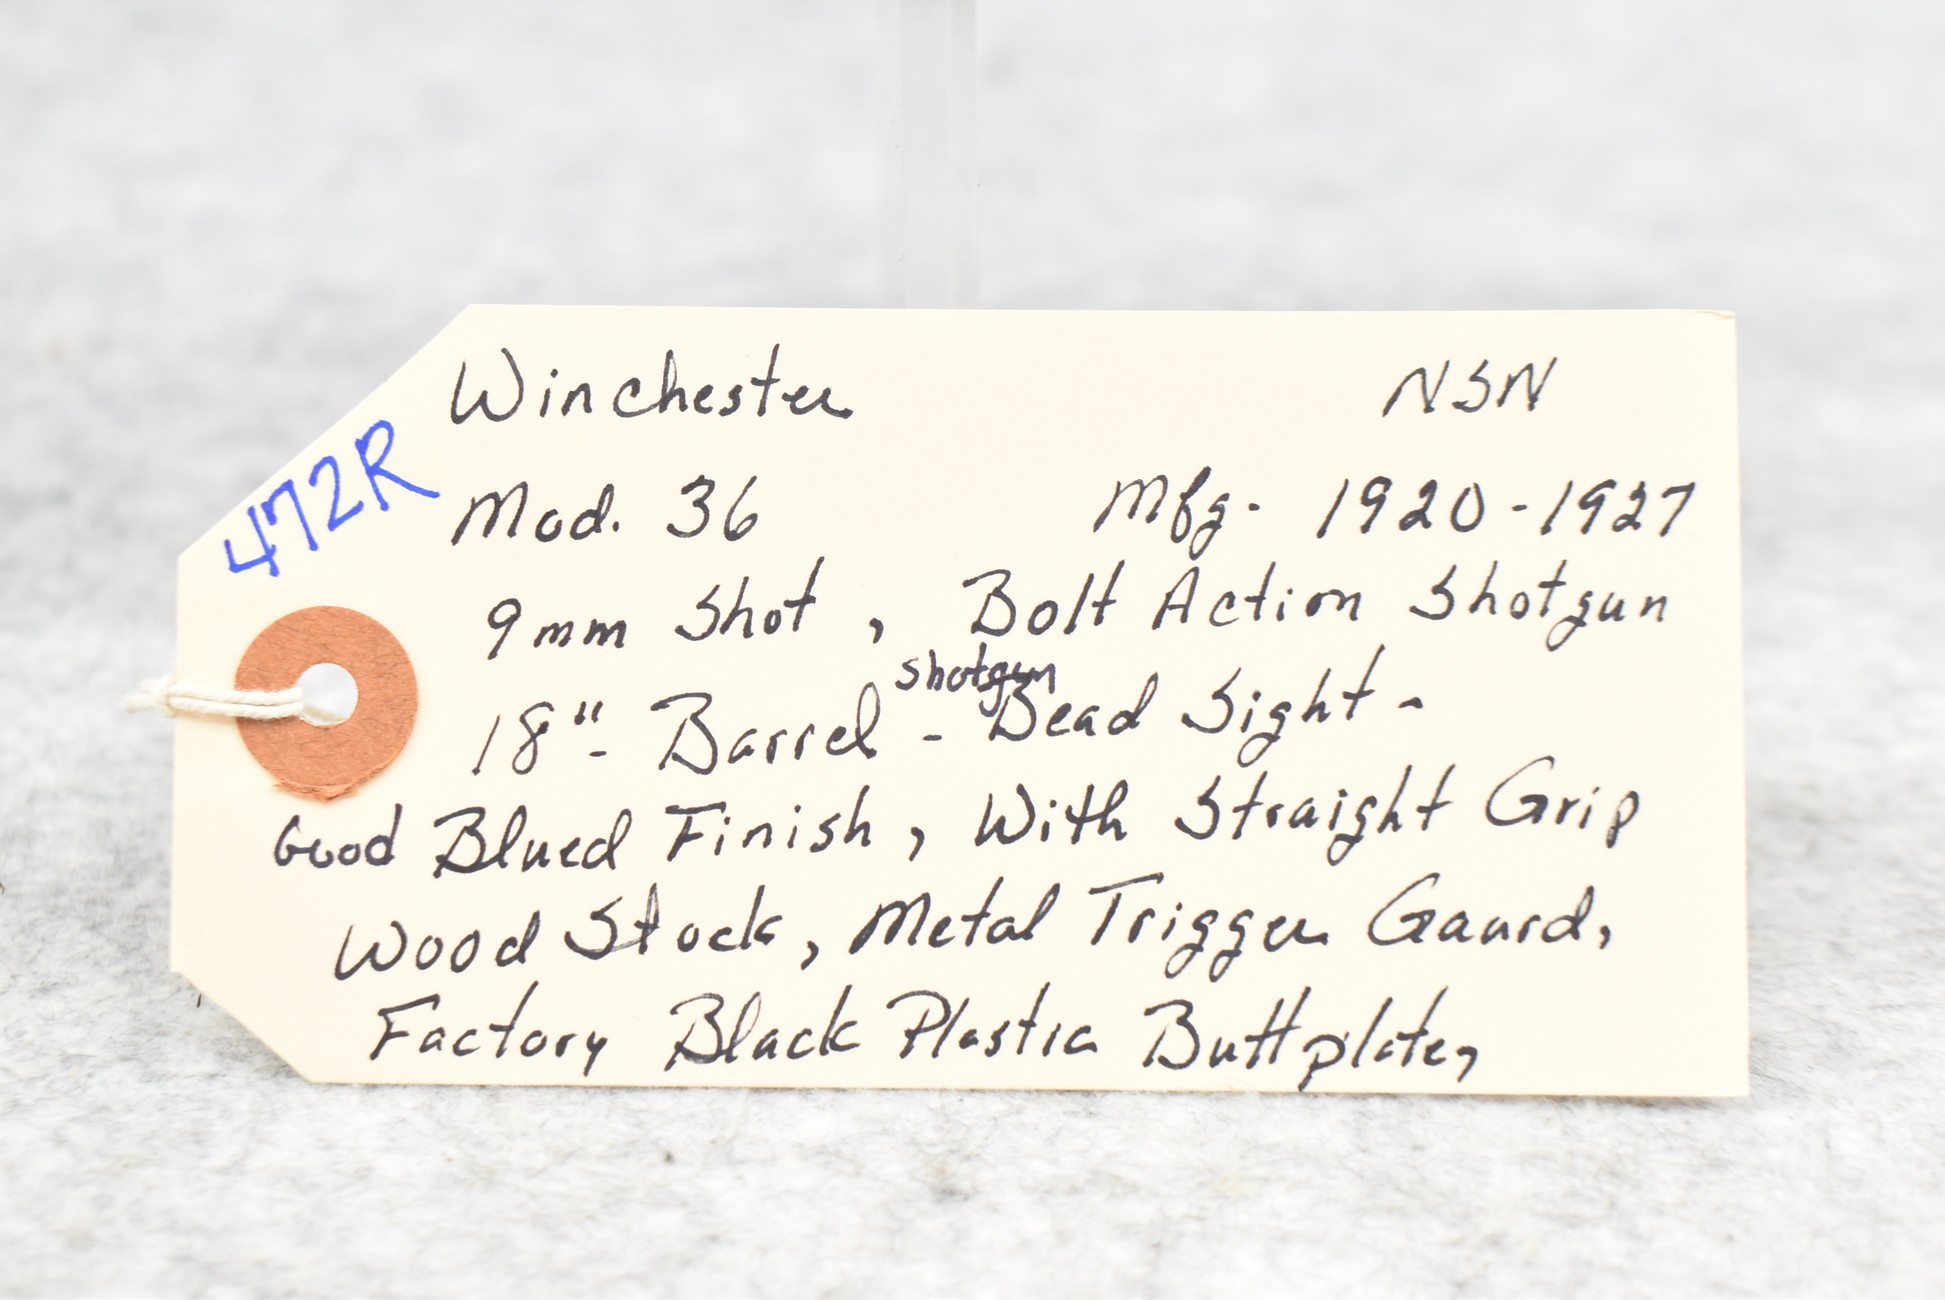 Winchester NSN
472R
Mod. 36 Mfg. 1920-1927
9mm Shot, Bolt Action Shotgun
shotgun
18"- Barrel - Bead Sight -
Good Blued Finish, With Straight Grip
Wood Stock, Metal Trigger Gaurd,
Factory Black Plastic Buttplate,